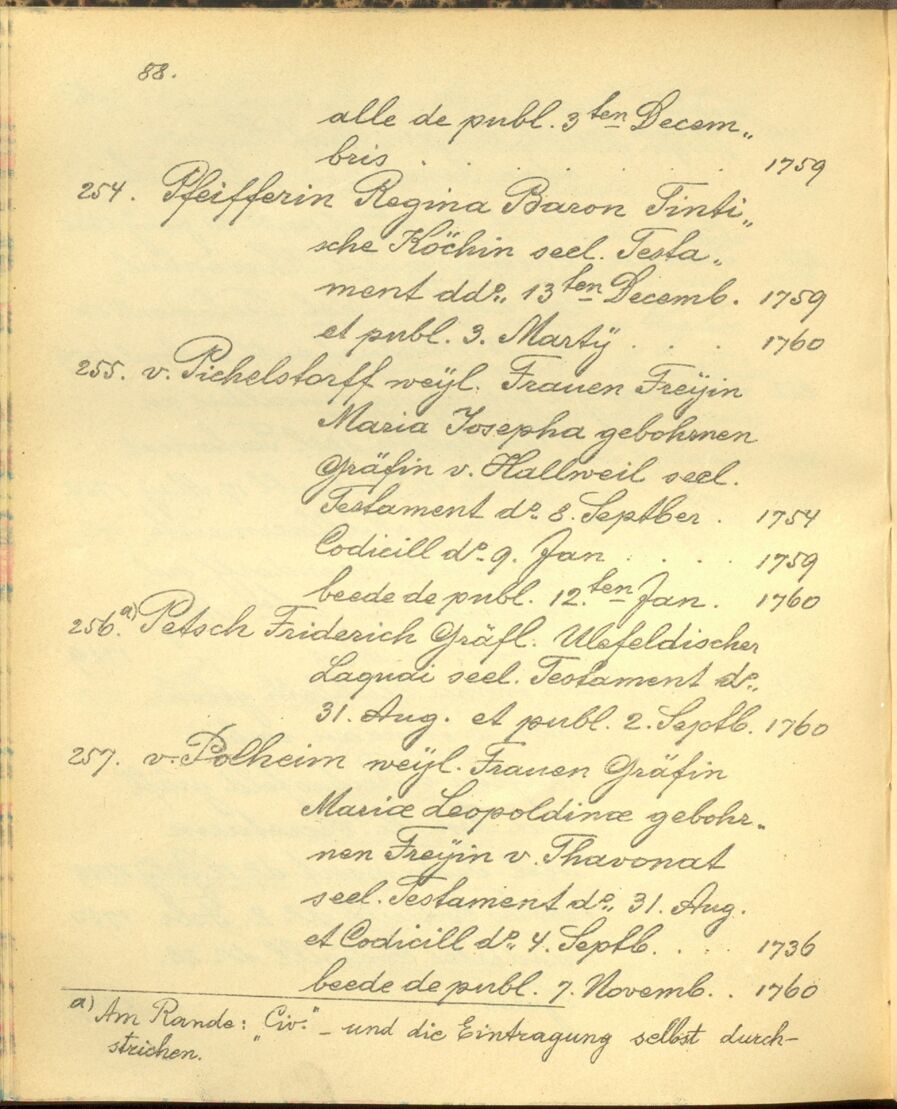 88.
alle de publ. 3ten Decem„
bris . . . . . 1759
254. Pfeifferin Regina Baron Tinti„
sche Köchin seel. Testa„
ment ddo„ 13ten Decemb. 1759
et publ. 3. Martÿ . . . 1760
255. v. Pichelstorff weÿl. Frauen Freÿin
Maria Josepha gebohrnen
Gräfin v. Hallweil seel.
Testament do. 8. Septber . 1754
Codicill do. 9. Jan . . . . 1759
beede de publ. 12.ten Jan. 1760
256.a) Petsch Friderich Gräfl. Ulefeldischer
Laquai seel. Testament do„
31. Aug. et publ. 2. Septb. 1760
257. v. Polheim weÿl. Frauen Gräfin
Mariæ Leopoldinæ gebohr„
nen Freÿin v. Thavonat
seel. Testament do„ 31. Aug.
et Codicill do„ 4. Septb. . . . 1736
beede de publ. 7. Novemb. . 1760
a) Am Rande: „Civ.“ – und die Eintragung selbst durch-
strichen.